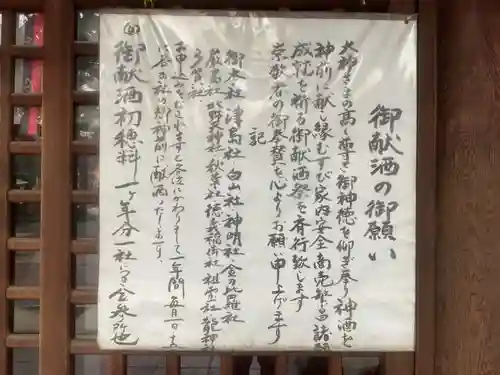 御献酒の御願い
大神さまの高き尊き御神徳を仰ぎ奉り神酒を
神前に献じ縁むすび家内安全商売繁昌諸願
成就を祈る御献酒祭を斉行致します
崇敬者の御奉賛を心よりお願い申し上げます
記
御本社 津島社 白山社 神明社 金刀比羅社
厳島社 熊野神社 秋葉社 徳義稲荷社 祖霊社 龍神社
多賀社
お申込みなされますと各位にかわりまして一年間毎月一日十五日
に各お社の御神前に献酒いたします。
御献酒初穂料 一ケ年分一社につき金参阡也